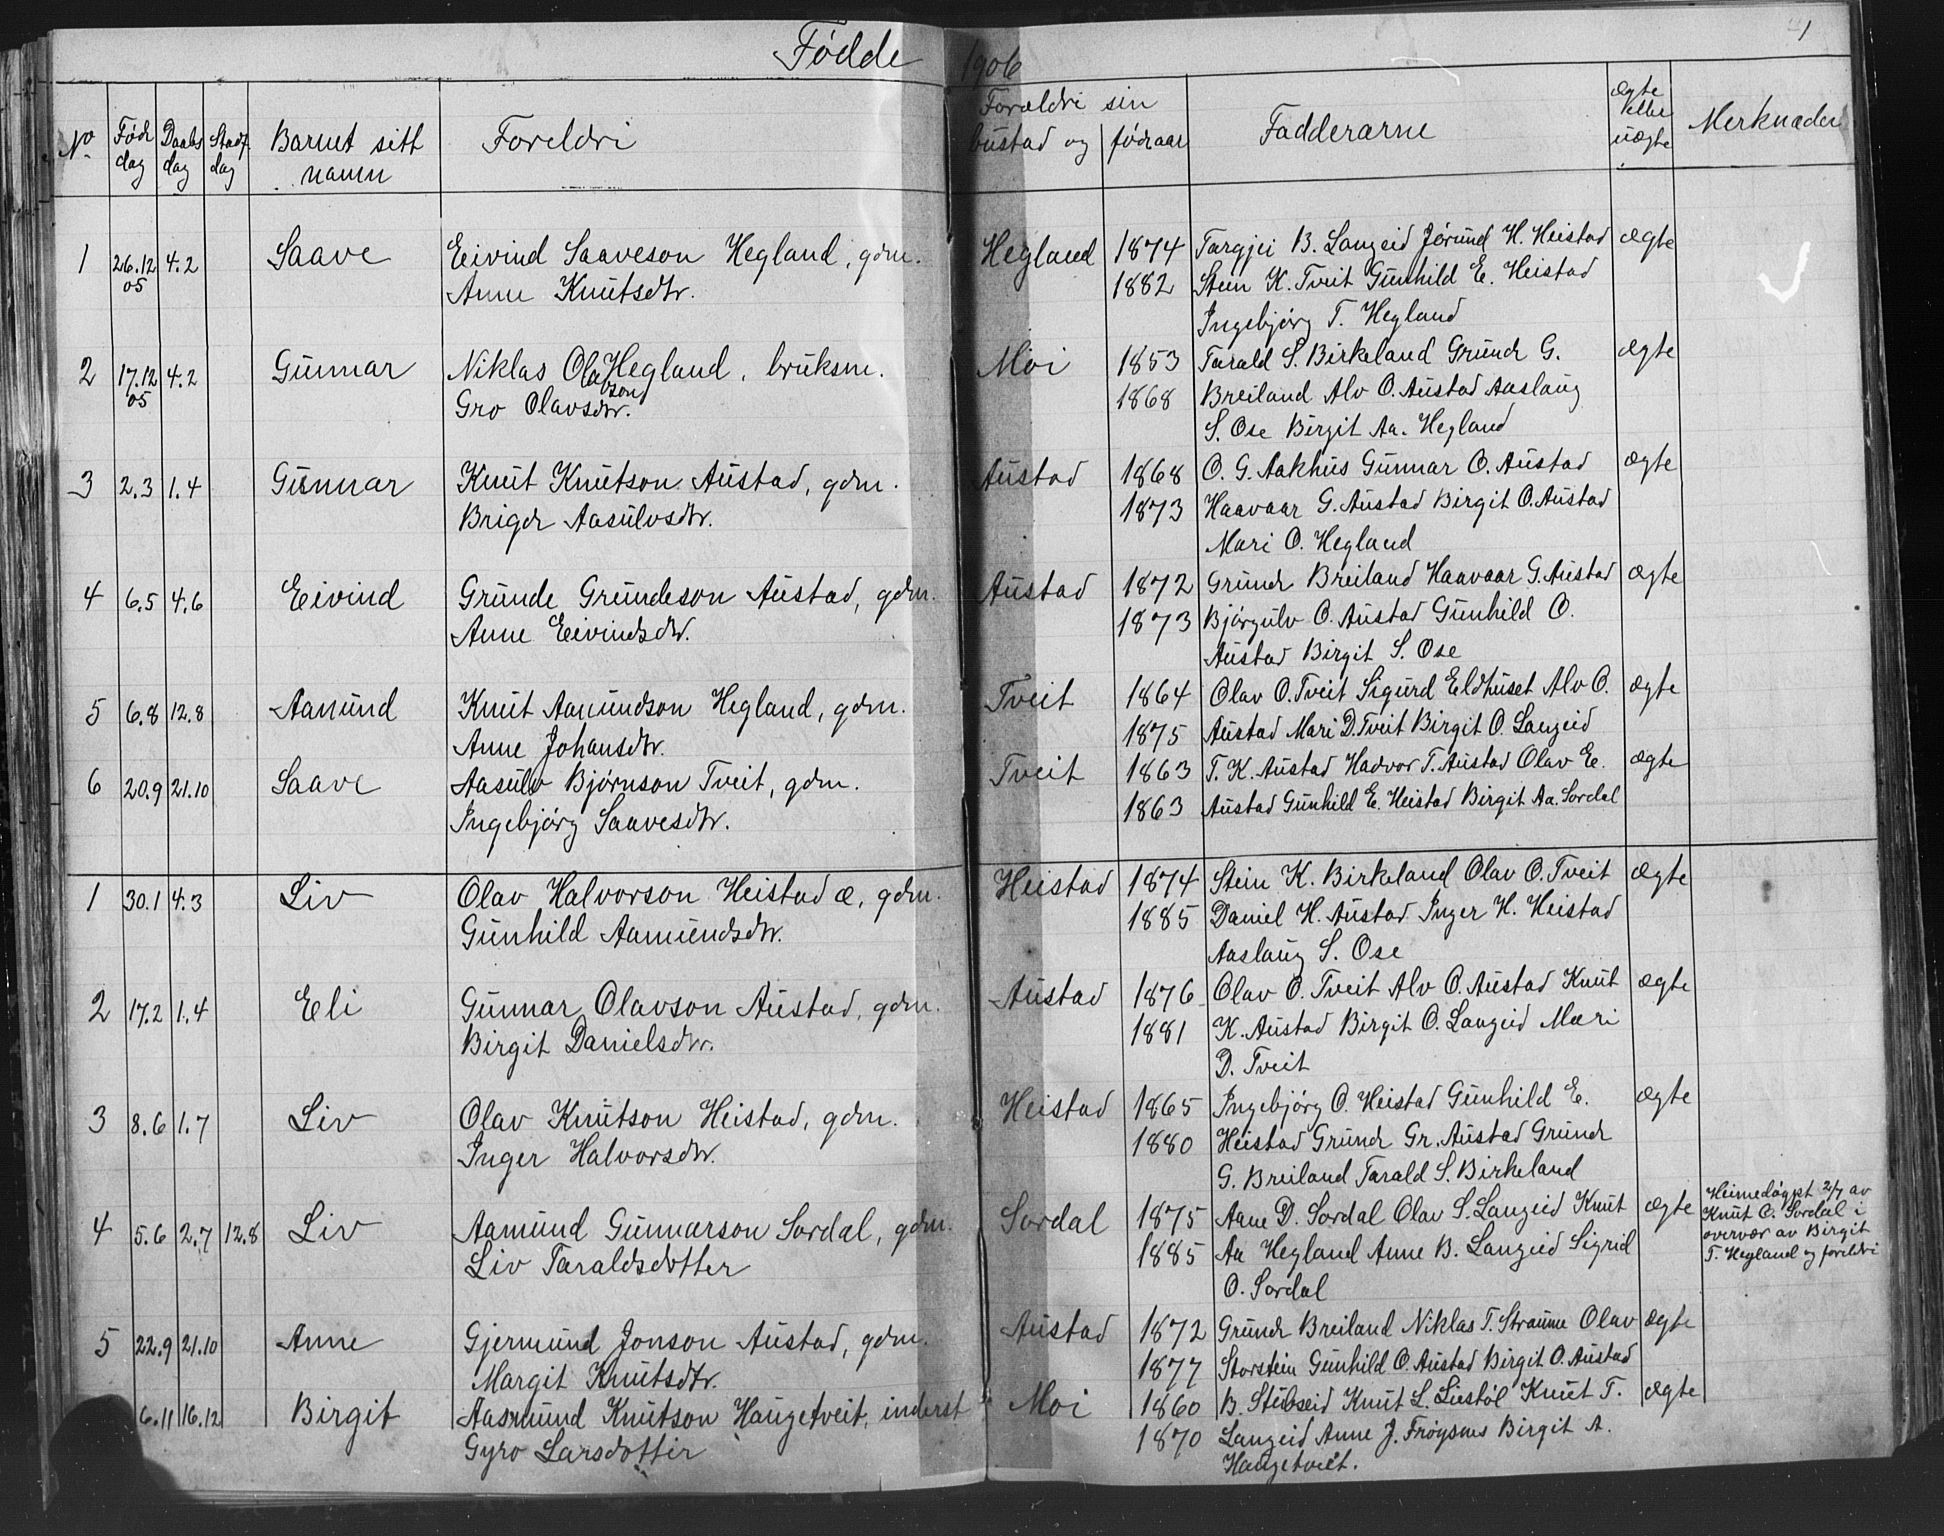 Fødde 1906
No Født dag Daabs dag Stadf. dag Barnet sitt namn Foreldri Foreldri sin bustad og fødraar Fadderarne ægte elbe uægte Merknader
1 26.12 05 4.2 Saave Eivind Saaveson Hegland, gdm. Hegland 1874 Targjei B. Langeid Jørund H. Heistad ægte
Anne Knutsdtr. 1882 Stein K. Tveit Gunhild E. Heistad
Ingebjørg T. Hegland
2 17.12 05 4.2 Gunnar Niklas Olavson Hegland, bruksm. Moi 1853 Tarald S. Birkeland Grunde G. ægte
Gro Olavsdtr. 1868 Breiland Alv O. Austad Aaslaug
S. Ose Birgit Aa. Hegland
3 2.3 1.4 Gunnar Knut Knutson Austad, gdm. Austad 1868 O. G. Aakhus Gunnar O. Austad ægte
Briger Aasulvsdtr. 1873 Haavaar G. Austad Birgit O. Austad
Mari O. Hegland
4 6.5 4.6 Eivind Grunde Grundeson Austad, gdm. Austad 1872 Grunde Breiland Haavaar G. Austad ægte
Anne Eivindsdtr. 1873 Bjørgulv O. Austad Gunhild O.
Austad Birgit S. Ose
5 6.8 12.8 Aamund Knut Aamundson Hegland, gdm. Tveit 1864 Olav O. Tveit Sigurd Eldhuset Alv O. ægte
Anne Johansdtr. 1875 Austad Mari D. Tveit Birgit O. Langeid
6 20.9 21.10 Saave Aasulv Bjørnson Tveit, gdm. Tveit 1863 T. K. Austad Hadvor T. Austad Olav E. ægte
Ingebjørg Saavesdtr. 1863 Austad Gunhild E. Heistad Birgit Aa. Sordal
1 30.1 4.3 Liv Olav Halvorson Heistad æ, gdm. Heistad 1874 Stein K. Birkeland Olav O. Tveit ægte
Gunhild Aamundsdtr. 1885 Daniel H. Austad Inger H. Heistad
Aaslaug S. Ose
2 17.2 1.4 Eli Gunnar Olavson Austad, gdm. Austad 1876 Olav O. Tveit Alv O. Austad Knut ægte
Birgit Danielsdtr. 1881 K. Austad Birgit O. Langeid Mari
D. Tveit
3 8.6 1.7 Liv Olav Knutson Heistad, gdm. Heistad 1865 Ingebjørg O. Heistad Gunhild E. ægte
Inger Halvorsdtr. 1880 Heistad Grunde Gr. Austad Grunde
G. Breiland Tarald S. Birkeland
4 5.6 2.7 12.8 Liv Aamund Gunnarson Sordal, gdm. Sordal 1875 Aane D. Sordal Olav S. Langeid Knut ægte
Liv Taraldsdotter 1885 Aa Hegland Anne B. Langeid Sigrid
O. Sordal
Heimedøypt 2/7 av
Knut O. Sordal i
overvær av Birgit
T. Hegland og foreldri
5 22.9 21.10 Anne Gjermund Jonson Austad, gdm. Austad 1872 Grunde Breiland Niklas T. Straume Olav ægte
Margit Knutsdtr. 1877 Storstein Gunhild O. Austad Birgit O. Austad
6.11 16.12 Birgit Aasmund Knutson Haugetveit, inderst Moi 1860 B. Stubseid Knut L. Liestøl Knut T. ægte
Gyro Larsdotter 1870 Langeid Anne J. Frøysnes Birgit A.
Haugetveit.